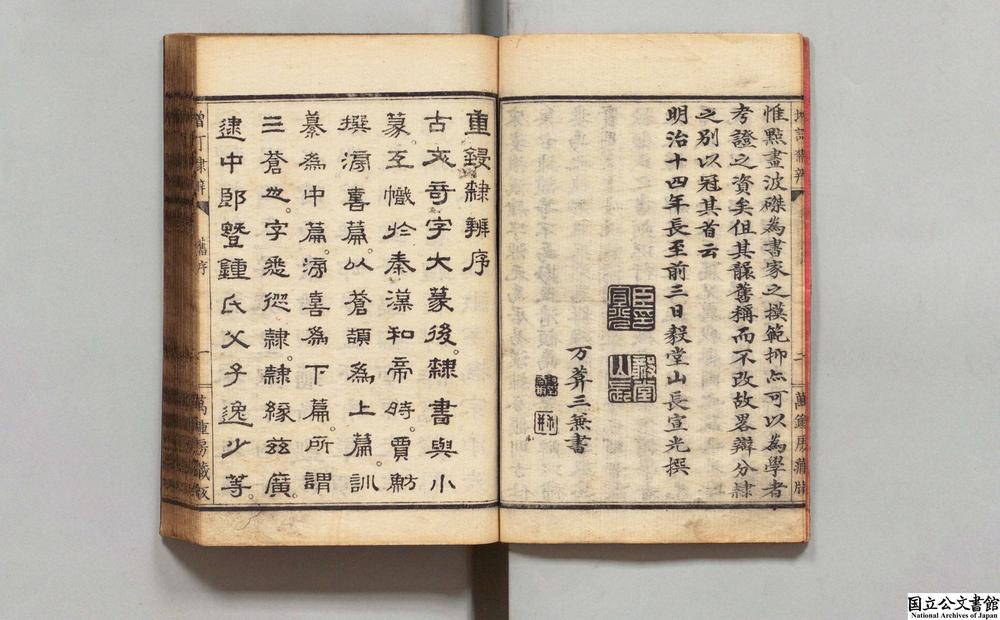 惟點畫波磔為書家之摸範抑亦可以為學者
考證之資矣但其襲舊稱而不改故畧辯分隷
之別以冠其首云
明治十四年長至前三日毅堂山長宣光撰
万葊三兼書
重鋟隸辨序
古文奇字大篆後。隸書與小
篆。互幟於秦漢和帝時。賈魴
撰滂喜篇。以蒼頡為上篇。訓
纂為中篇。滂喜為下篇。所謂
三蒼也。字悉從隸。隸緣玆廣。
逮中郎暨鍾氏父子逸少等。
舊序
一
国立公文書館
National Archives of Japan